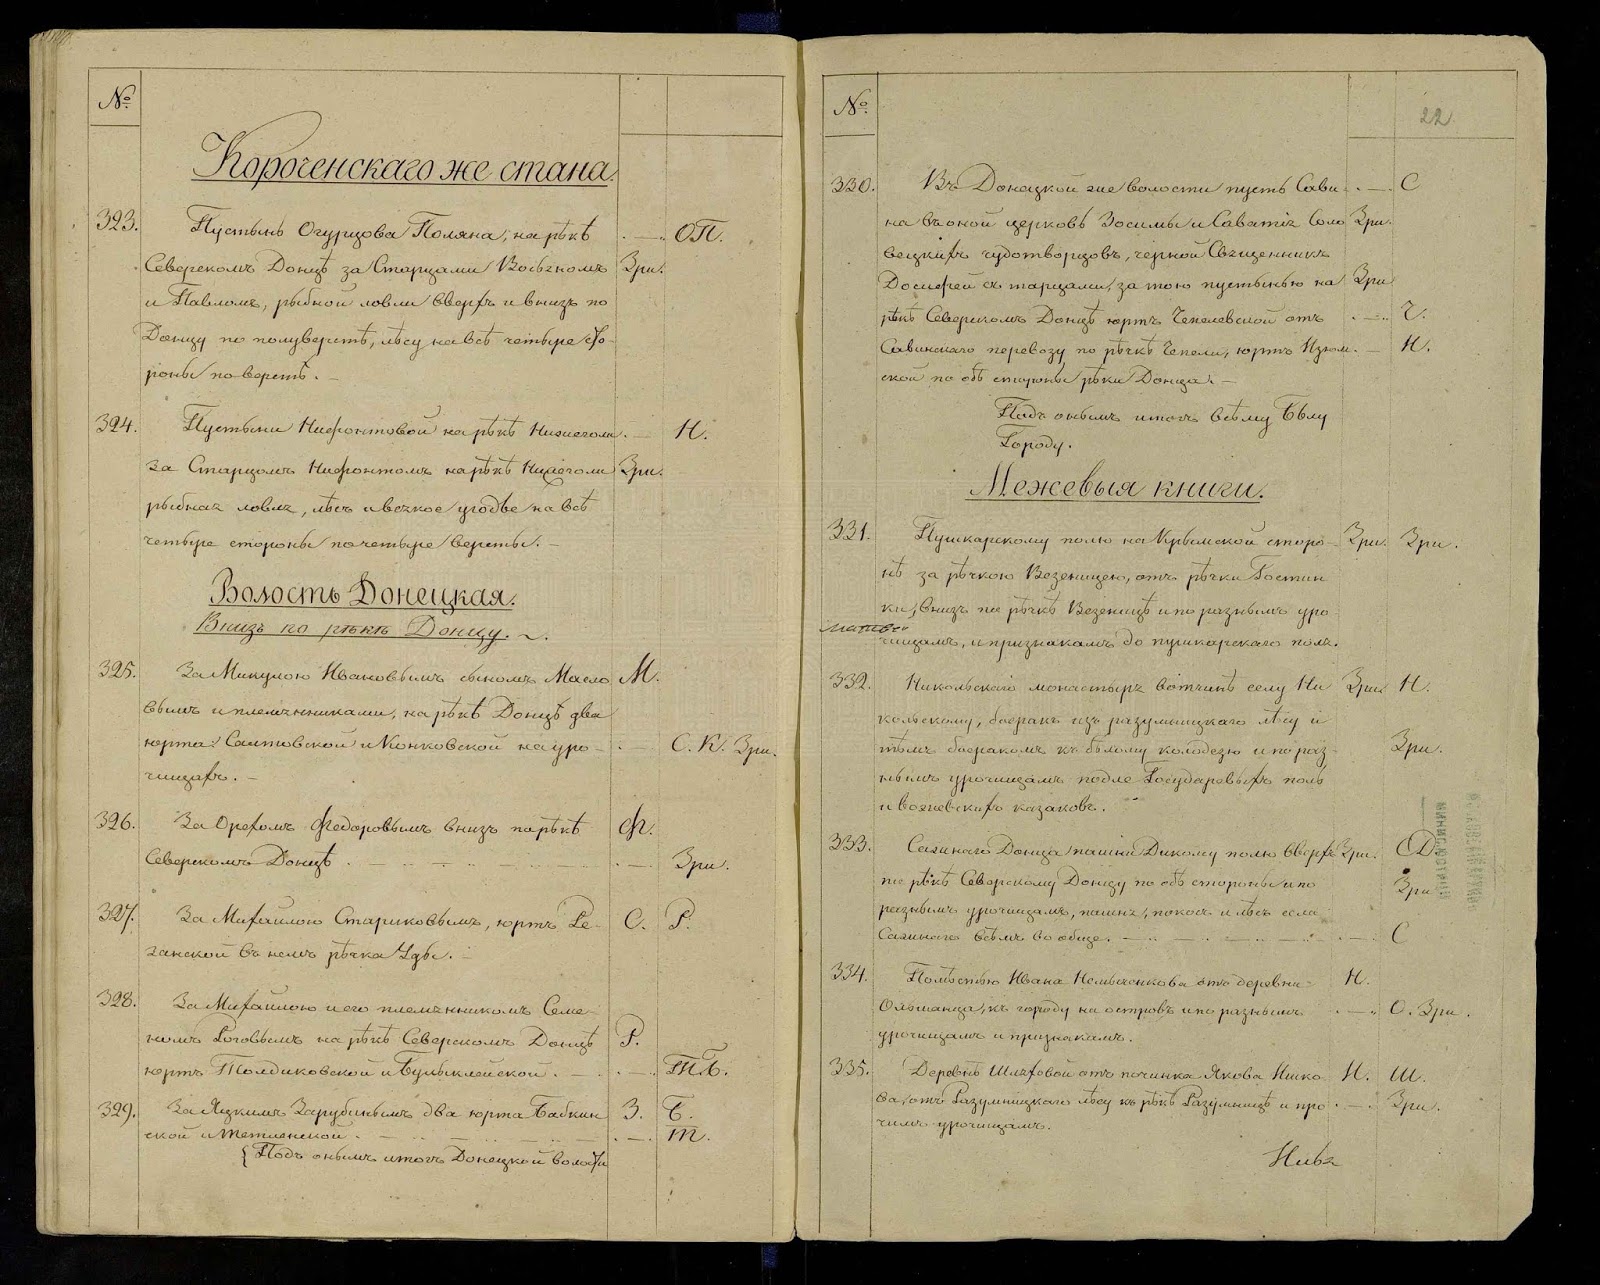 №
Короченскаго же стана.
323. Пустынь Огурцова Поляна, на рѣкѣ . — .. ОП.
Северскомъ Донцѣ за Старцами Зри.
и Павломъ, рыбной ловли вверхъ и внизъ по
Донцу по полуверстѣ, лѣсу на всѣ четыре сто-
роны по верстѣ. —
324. Пустыни Нифонтовой на рѣкѣ Нижеголи . — Н.
за Старцомъ Нифонтомъ на рѣкѣ Нижеголи Зри.
рыбная ловля, лѣсъ и всякое угодье на всѣ
четыре стороны по четыре версты. —
Волость Донецкая.
Внизъ по рѣкѣ Донцу.
325. За Микулою Ивановымъ сыномъ Масло М.
вымъ и племянниками, на рѣкѣ Донцѣ два
юрта: Салтовской и Конковской на уро- . — . С. К. Зри.
чищахъ. —
326. За Орехомъ Федоровымъ внизъ по рѣкѣ Ф.
Северскомъ Донцѣ . — Зри.
327. За Михайлою Стариковымъ, юртъ Ре- С. Р.
занской въ немъ рѣчка Уды. —
328. За Михайлою и его племянникомъ Семе-
номъ Роговымъ на рѣкѣ Северскомъ Донцѣ Р.
юртъ Толдиковской и Булыклейской . — Т.Б.
329. За Яцкимъ Зарубинымъ два юрта Бабкин З. Б.
ской и Тетлеиской . — Т.
{Подъ онымъ итогъ Донецкой волости
№
22
330. Въ Донецкой же волости пустынь Сави- . — . С
на въ оной церковь Зосимы и Саватія Соло Зри.
вецкихъ чудотворцовъ, черной Священникъ
Досифей съ старцами, за тою пустынью на Зри
рѣкѣ Северскомъ Донцѣ юртъ Чепелевской отъ . — .. Ч.
Савинскаго перевозу по рѣчкѣ Чепели, юртъ Изюм . — И.
ской по обѣ стороны рѣки Донца. —
Подъ онымъ итогъ всѣму Бѣлу
Городу.
Межевыя книги.
331. Пушкарскому полю на Крымской сторо- Зри. Зри.
нѣ за рѣчкою Везеницею, отъ рѣчки Гостин
ки, внизъ по рѣчкѣ Везеницѣ и по разнымъ уро
чищамъ, и признакамъ до пушкарскаго поля.
332. Никольскаго монастыря вотчинѣ селу Ни Зри. Н.
кольскому, боеракъ изъ разумницкаго лѣсу и
тѣмъ боеракомъ къ бѣлому колодезю и по раз- Зри.
нымъ урочищамъ подле Государевыхъ поль
и казаковъ.
333. Донца пашни Дикому полю вверхъ Зри. Д
по рѣкѣ Северскому Донцу по обѣ стороны и по Зри.
разнымъ урочищамъ, пашня, покосъ и лѣсъ села
всѣмъ вообще. — С
334. Помѣстью Ивана отъ деревни Н.
Ольшанца, къ городу на островъ и по разнымъ . — .. О. Зри.
урочищамъ и признакамъ.
335. Деревнѣ Шляховой отъ починка Якова И. Ш.
ва, отъ Разумницкаго лѣсу къ рѣкѣ Разумницѣ и про . — . Зри.
чимъ урочищамъ.
Нива